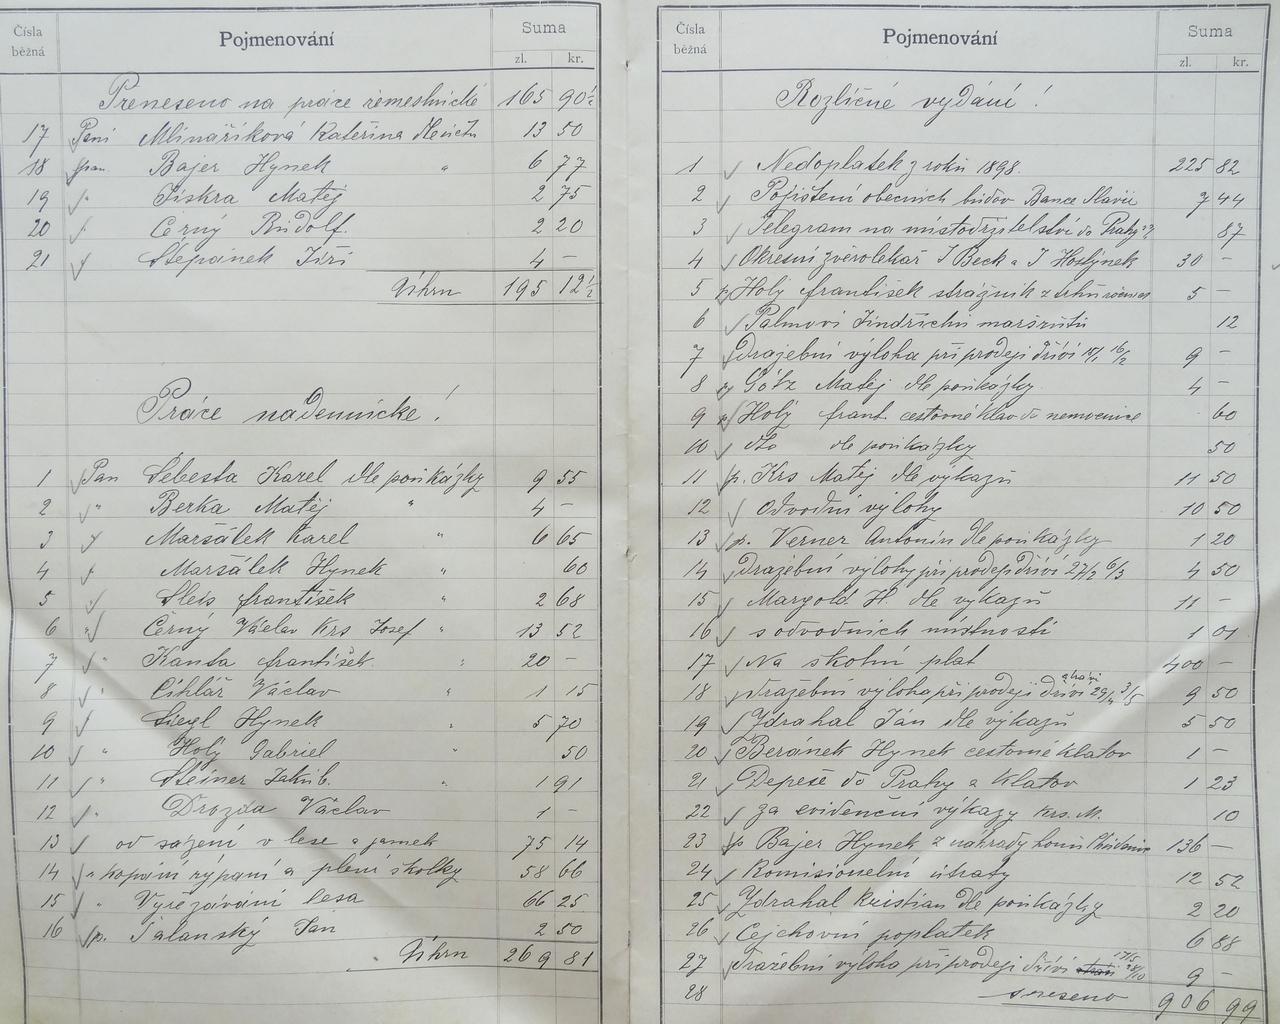 Čísla běžná Pojmenování Suma
zl. kr.
Přeneseno na práce řemeslnické 165 90½
17 Paní Mlinaříková Kateřina dle účtu 13 50
18 pan Bajer Hynek " 6 77
19 " Jiskra Matěj 2 75
20 " Černý Rudolf 2 20
21 " Štěpánek Jiří 4 –
Úhrn 195 12½
Práce nádennické!
1 Pan Šebesta Karel dle poukázky 9 55
2 " Berka Matěj " 4 –
3 " Maršálek Karel " 6 65
4 " Maršálek Hynek " 60
5 " Šleis František " 2 68
6 " Černý Václav Krs Josef " 13 52
7 " Kanta František " 20 –
8 " Cihlář Václav " 1 15
9 " Siegl Hynek " 5 70
10 " Holý Gabriel " 50
11 " Steiner Jakub " 1 91
12 " Drozda Václav 1 –
13 od sázení v lese a jamek 75 14
14 " kopání rýpání a plení školky 58 66
15 " Vyřezávání lesa 66 25
16 p. Šalanský Jan 2 50
Úhrn 269 81
Čísla běžná Pojmenování Suma
zl. kr.
Rozličné vydání!
1 Nedoplatek z roku 1898. 225 82
2 Pojištění obecních budov Bance Slavii 7 44
3 Telegram na místodržitelství do Prahy 87
4 Okresní zvěrolekař J Beck a J Hostýnek 30 –
5 p Holý František strážník z trhů 5 –
6 Palmovi Jindřichu maršrutu 12
7 Dražební výloha při prodeji dříví 15/1 16/2 9 –
8 p Götz Matěj dle poukázky 4 –
9 p Holý Frant cestovné Klatov do nemocnice 60
10 dto dle poukázky 50
11 p. Krs Matěj dle výkazů 11 50
12 Odvodní výlohy 10 50
13 p. Verner Antonín dle poukázky 1 20
14 Dražební výlohy při prodeji dříví 27/2 6/3 4 50
15 Margold H. dle výkazů 11 –
16 s odvodních místností 1 01
17 Na školní plat 400 –
18 Dražební výloha při prodeji dříví 29/4 3/5 9 50
19 Zdrahal Ján dle výkazů 5 50
20 Beránek Hynek cestovné Klatov 1 –
21 Depeše do Prahy a Klatov 1 23
22 za evidenční výkazy Krs. M. 10
23 p Bajer Hynek z náhrady honu 136 –
24 Komisionelní útraty 12 52
25 Zdrahal Kristian dle poukázky 2 20
26 Cejchovní poplatek 6 88
27 Dražební výloha při prodeji dříví 9 –
28 snešeno 906 99